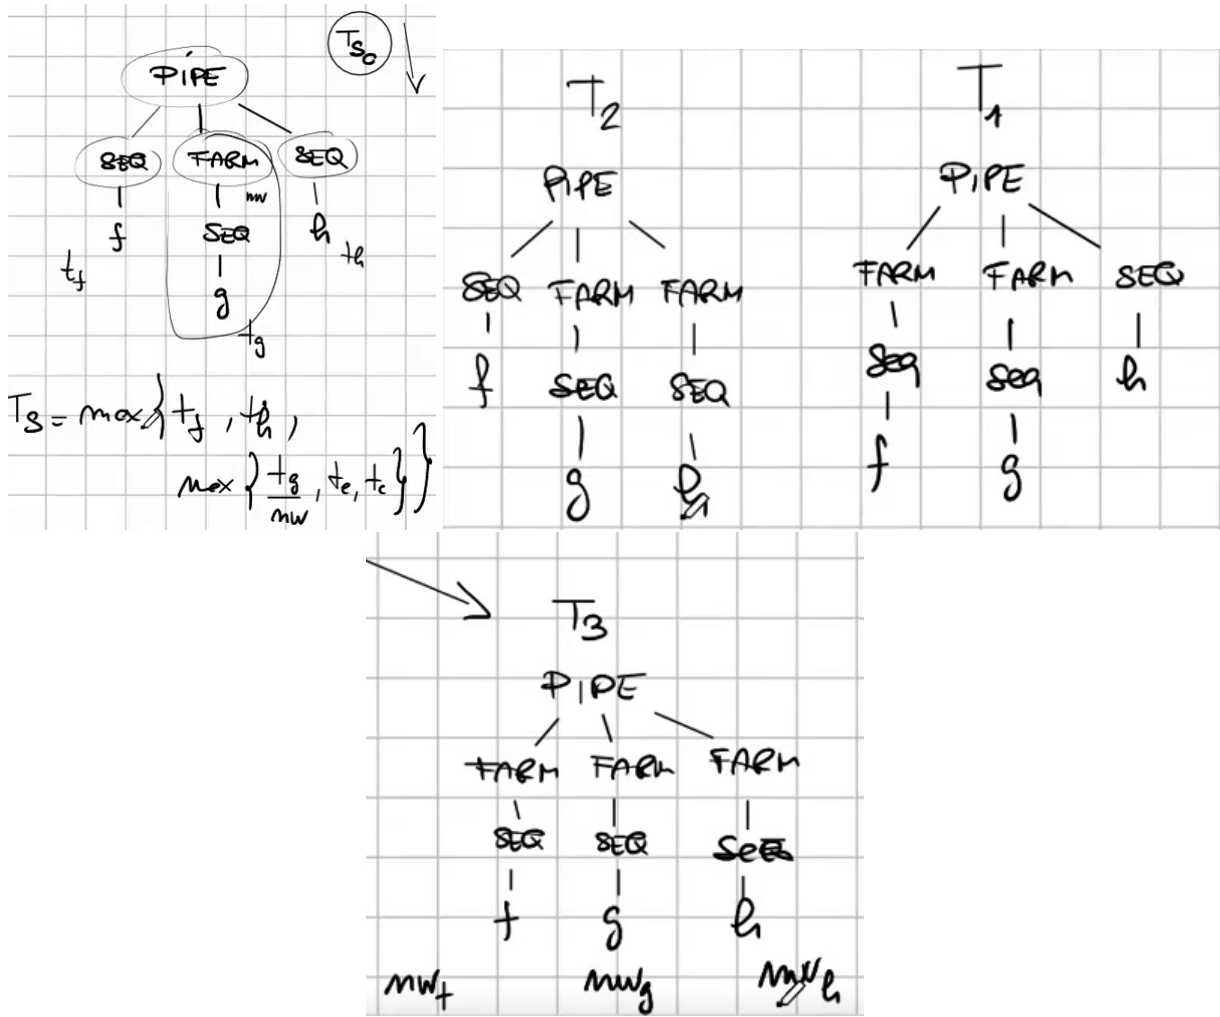 T_S0
PIPE
SEQ FARM SEQ
nw
f SEQ h
t_f t_h
g
t_g
T_S = max { t_f , t_h ,
max { t_g / nw , t_e , t_c } }
T_2
PIPE
SEQ FARM FARM
f SEQ SEQ
g h
T_1
PIPE
FARM FARM SEQ
Seq Seq h
f g
T_3
PIPE
FARM FARM FARM
SEQ SEQ SEQ
f g h
nw_f nw_g nw_h